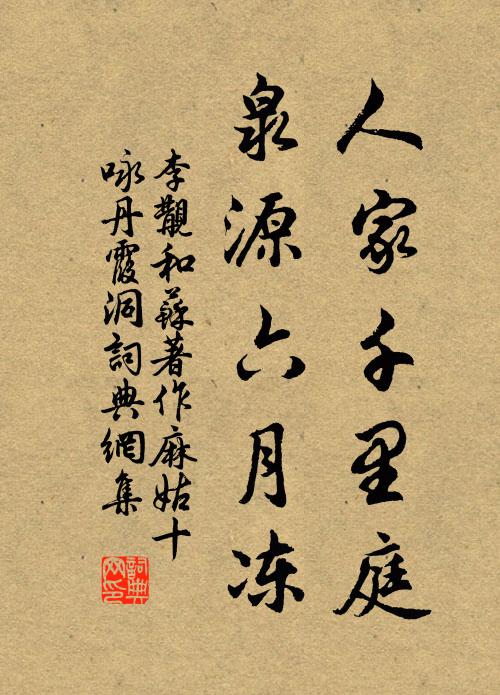 人家千里庭
泉源六月冻
李覯和蘇著作麻姑十
咏丹霞洞詞典網集
詞典
网印